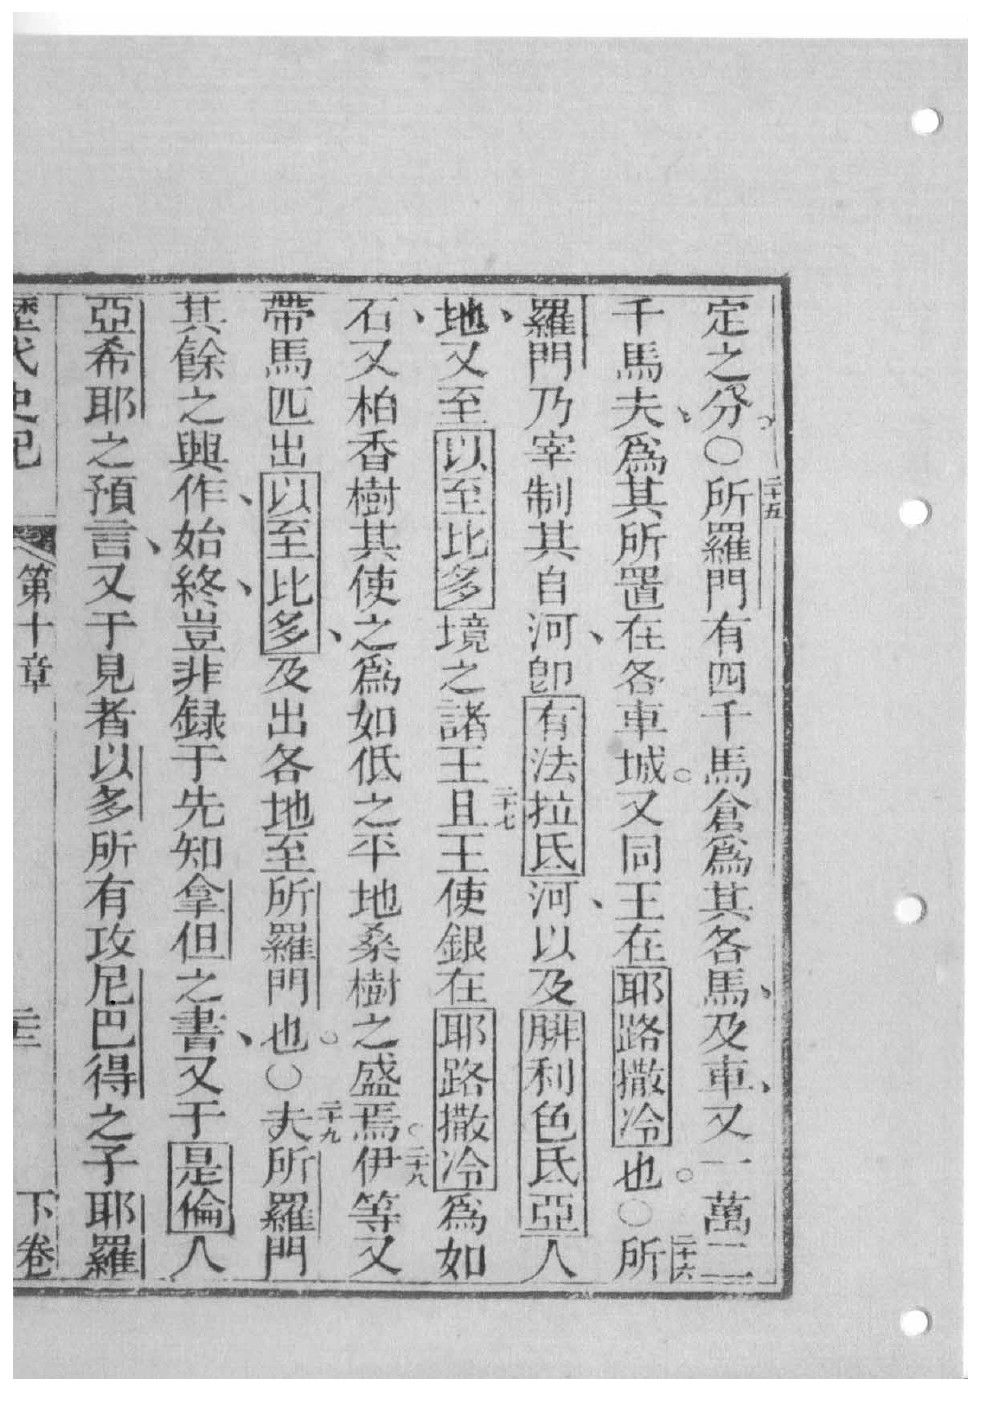 定之分。〇二十五所羅門有四千馬倉爲其各馬、及車、又一萬二
千馬夫、爲其所置在各車城。又同王在耶路撒冷也。〇二十六所
羅門乃宰制其自河、卽有法拉氐河、以及腓利色氐亞人
地、又至以至比多境之諸王二十七且王使銀在耶路撒冷爲如
石、又柏香樹其使之爲如低之平地桑樹之盛焉。二十八伊等又
帶馬匹出以至比多、及出各地至所羅門也。〇二十九夫所羅門
其餘之興作、始終、豈非録于先知拿但之書、又于是倫人
亞希耶之預言、又于見者以多所有攻尼巴得之子耶羅
歷代史記 第十章 二十三 下卷